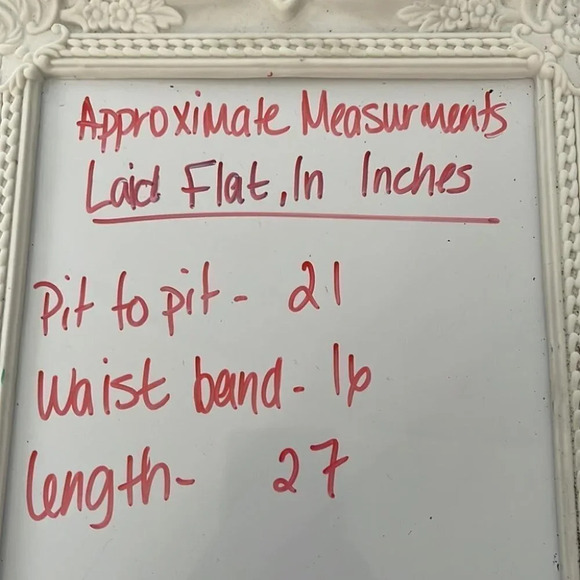 Approximate Measurments
Laid Flat, In Inches
Pit to pit - 21
Waist band - 16
length - 27